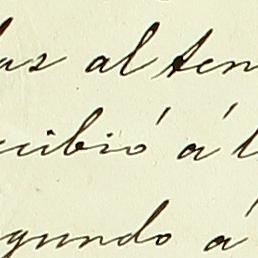 las al ten
cibió á l
gundo á